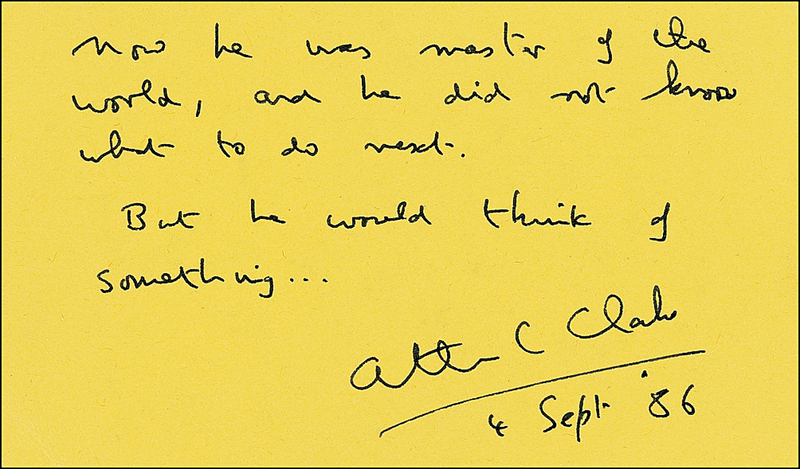 Now he was master of the
world, and he did not know
what to do next.
But he would think of
something...
Arthur C Clarke
4 Sept '86